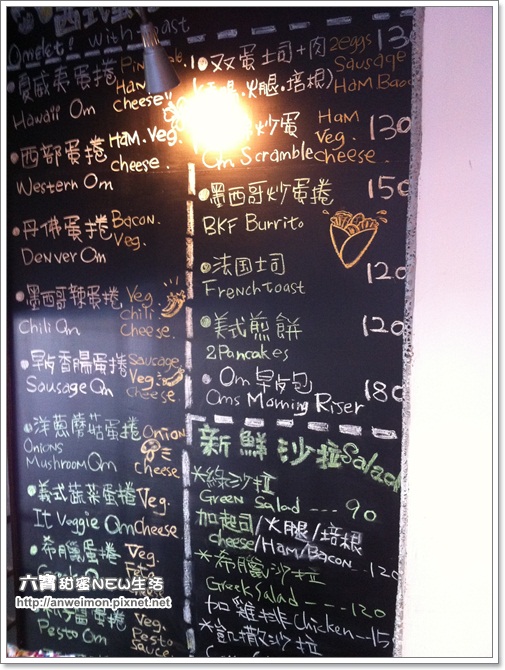 Omelet! with
夏威夷蛋捲
Hawaii Om
HAM
cheese
西部蛋捲 HAM. Veg.
Western Om cheese
丹佛蛋捲 Bacon.
Denver Om Veg.
墨西哥辣蛋捲 Veg.
Chili Om chili
Cheese.
早安香腸蛋捲 Sausage
Sausage Om Veg.
Cheese
洋蔥蘑菇蛋捲 Onion
Onions
Mushroom Om cheese
義式蔬菜蛋捲 Veg.
It Veggie Om Cheese
希臘蛋捲 Veg.
蛋捲 Veg.
Pesto Om Pesto
sauce
双蛋土司+肉 2eggs 130
火腿.培根) Sausage
HAM
炒蛋 HAM
Veg. 130
Om Scramble cheese
墨西哥炒蛋捲 150
BKF Burrito
法国土司 120
French Toast
美式煎餅 120
2 Pancakes
Om 早安包 180
Oms Morning Riser
新鮮沙拉 Salad
*綠沙拉
Green Salad --- 90
加起司/火腿/培根
cheese/Ham/Bacon --- 120
*希臘沙拉
Greek Salad ---- 120
加雞排 Chicken --15
*凱撒沙拉
六寶 甜蜜NEW生活
http://anweimon.pixnet.net